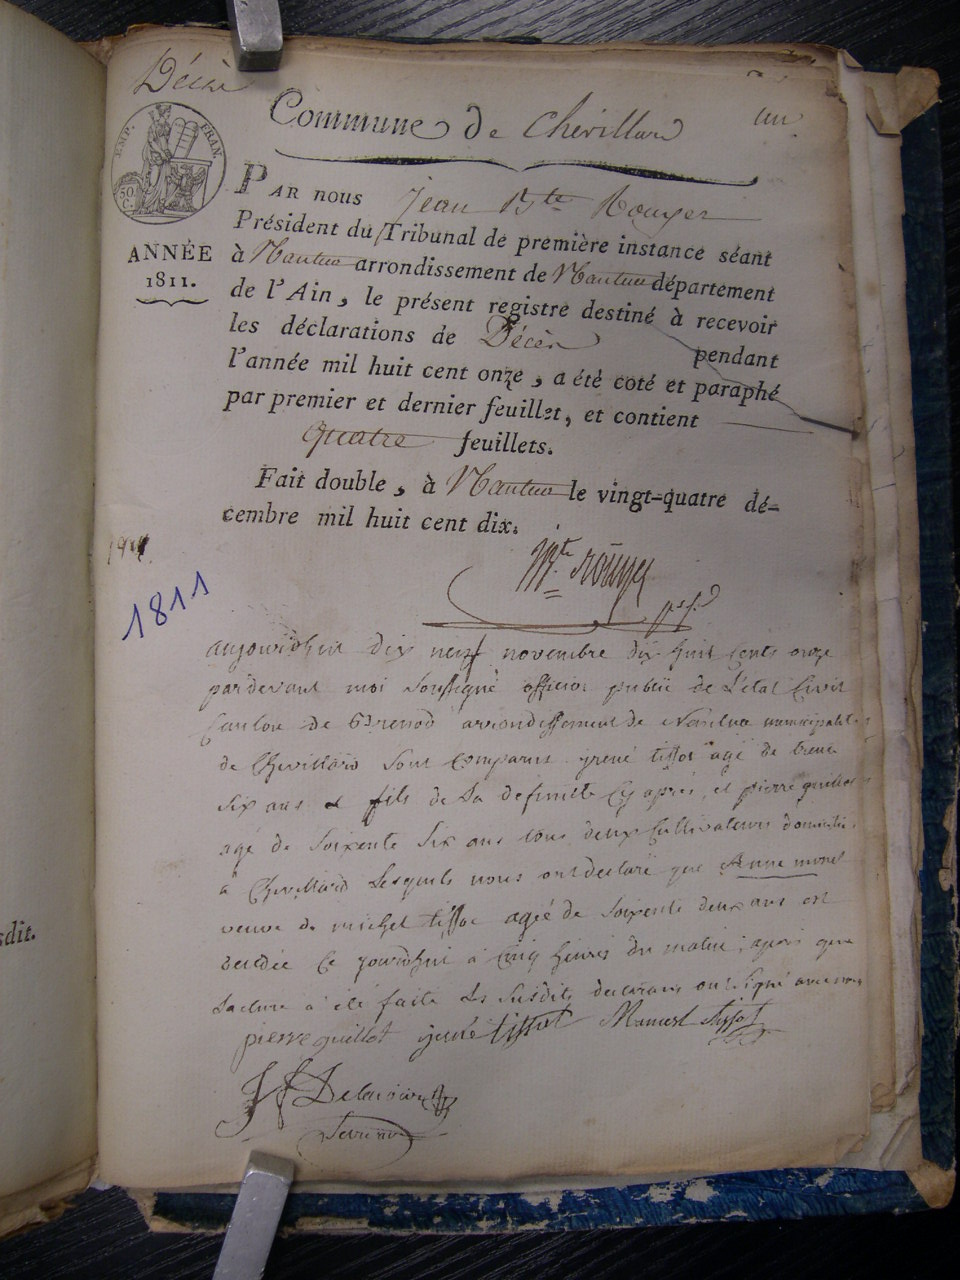 Décès
un
Commune de Chevillard
EMP. FRAN.
50 C.
ANNÉE
1811.
PAR nous Jean Bte Rouyer
Président du Tribunal de première instance séant
à Nantua arrondissement de Nantua département
de l'Ain, le présent registre destiné à recevoir
les déclarations de Décès pendant
l'année mil huit cent onze, a été coté et paraphé
par premier et dernier feuillet, et contient
quatre feuillets.
Fait double, à Nantua le vingt-quatre dé-
cembre mil huit cent dix.
Bte rouyer
1811
aujourdhui dix neuf novembre dix huit cents onze
pardevant moi soussigné officier public de l'état civil
canton de Brenod arrondissement de Nantua municipalité
de Chevillard sont comparus tissot agé de trente
six ans fils de la defunte cy après, et pierre guillot
agé de soixente six ans tous deux cultivateurs domicilié
a Chevillard lesquels nous ont declaré que Anne
veuve de michel tissot agée de soixente deux ans est
decedée ce jourdhui a cinq heures du matin, après que
lecture a été faite les susdits declarans ont signé avec nous
pierre guillot tissot tissot
sdit.